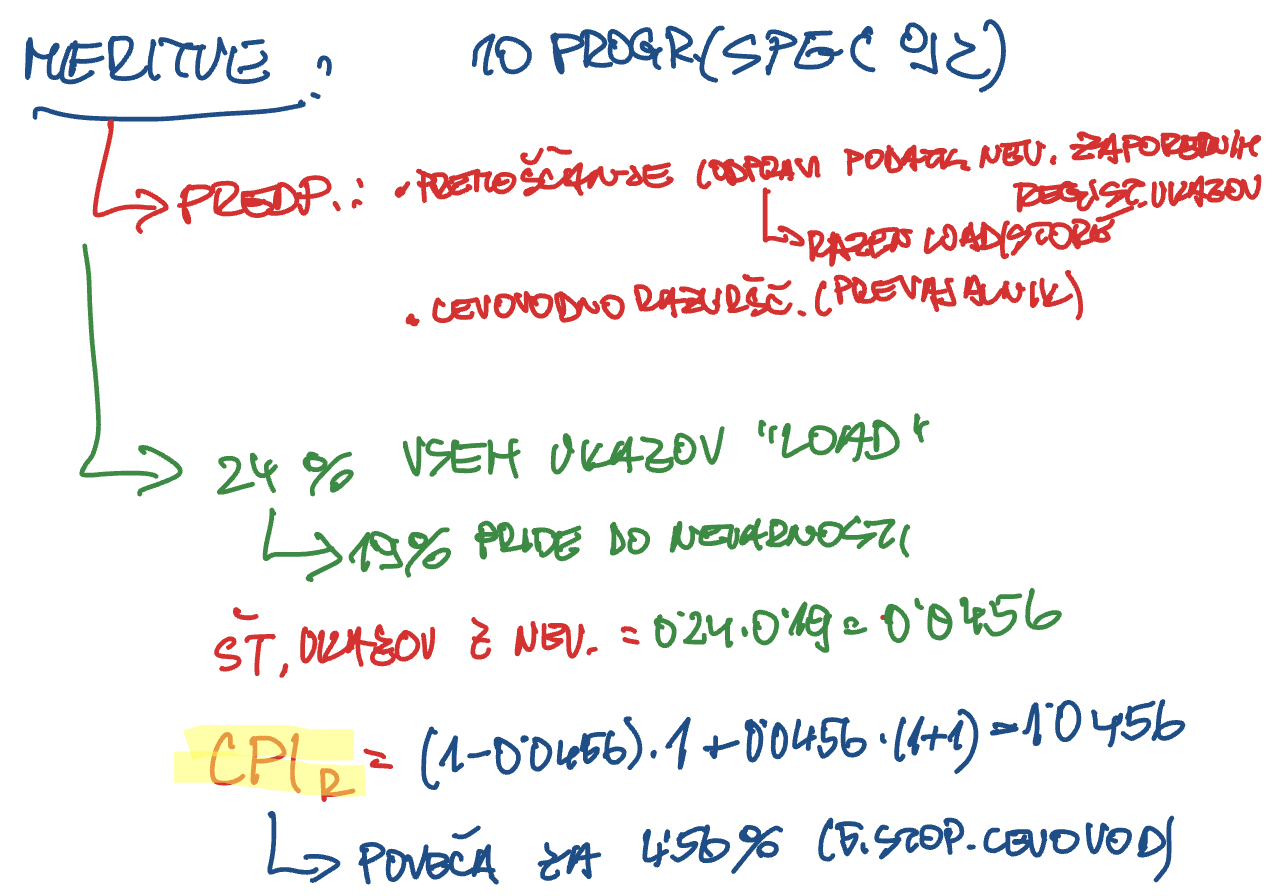 MERITVE : 10 PROGR(SPEC 92)
PREDP.: • PREMOŠČANJE (ODPRAVI PODATK. NEV. ZAPOREDNIH
REGIST. UKAZOV
RAZEN LOAD/STORE
• CEVOVODNO RAZVRŠČ. (PREVAJALNIK)
24 % VSEH UKAZOV "LOAD"
19% PRIDE DO NEVARNOSTI
ŠT. UKAZOV Z NEV. = 0'24 . 0'19 = 0'0456
CPI_R = (1-0'0456) . 1 + 0'0456 . (1+1) = 1'0456
POVEČA ZA 4'56% (5.STOP. CEVOVOD)